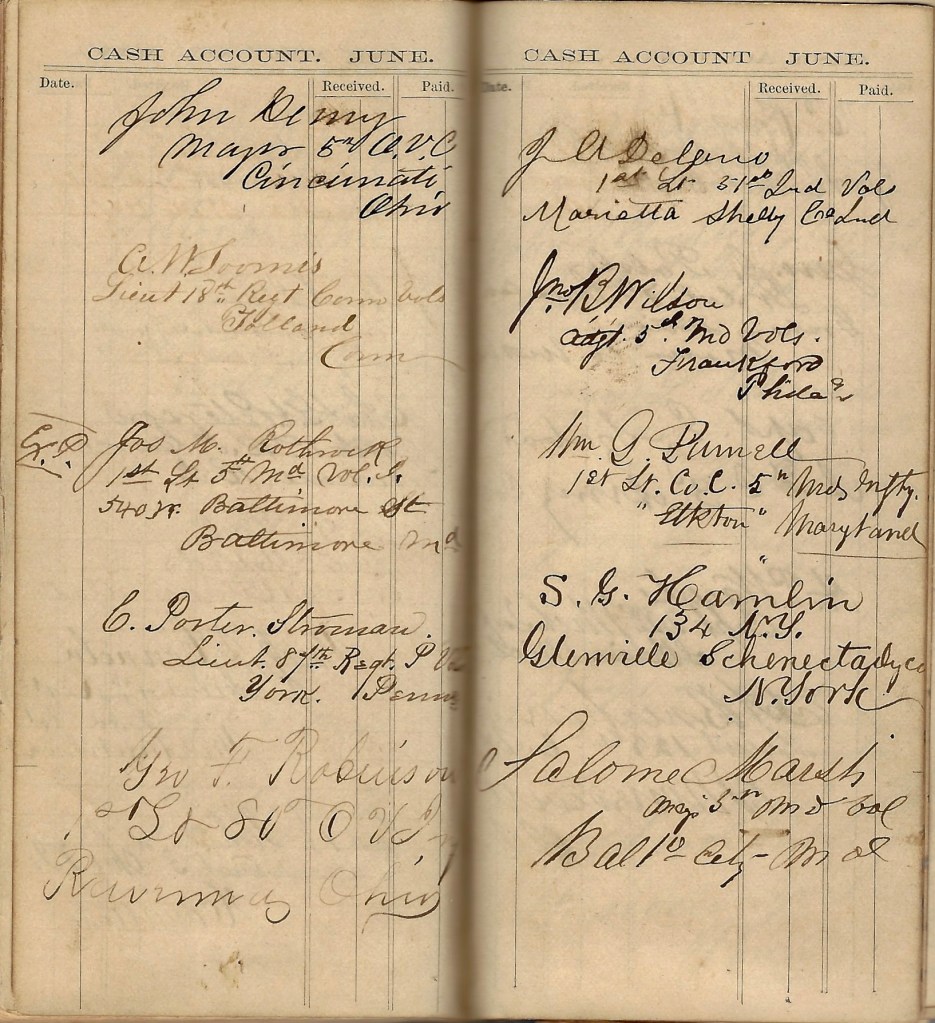 CASH ACCOUNT. JUNE.
Date. Received. Paid.
John Henry
Major 5th O.V.C
Cincinnati
Ohio
A. W. Loomis
Lieut 18th Regt Conn Vols
Tolland
Conn
Jos M. Rothrock
1st Lt 5th Md Vol. I.
540 W. Baltimore St
Baltimore Md
C. Porter. Stroman.
Lieut. 87th Regt. P V
York. Penna
Geo F. Robinson
1st Lt 80 O V In
Ravenna Ohio
CASH ACCOUNT JUNE.
Date. Received. Paid.
J A Delano
1st Lt 51st Ind Vols
Marietta Shelby Co Ind
Jno. B Wilson
Adjt. 5th Md Vols.
Frankford
Phila
Wm. G. Purnell
1st Lt. Co. C. 5th Md Infty.
"Elkton" Maryland
S. G. Hamlin
134 N.Y.
Glenville Schenectady co
N. York
Salome Marsh
Maj 5th Md Vol
Balto City Md